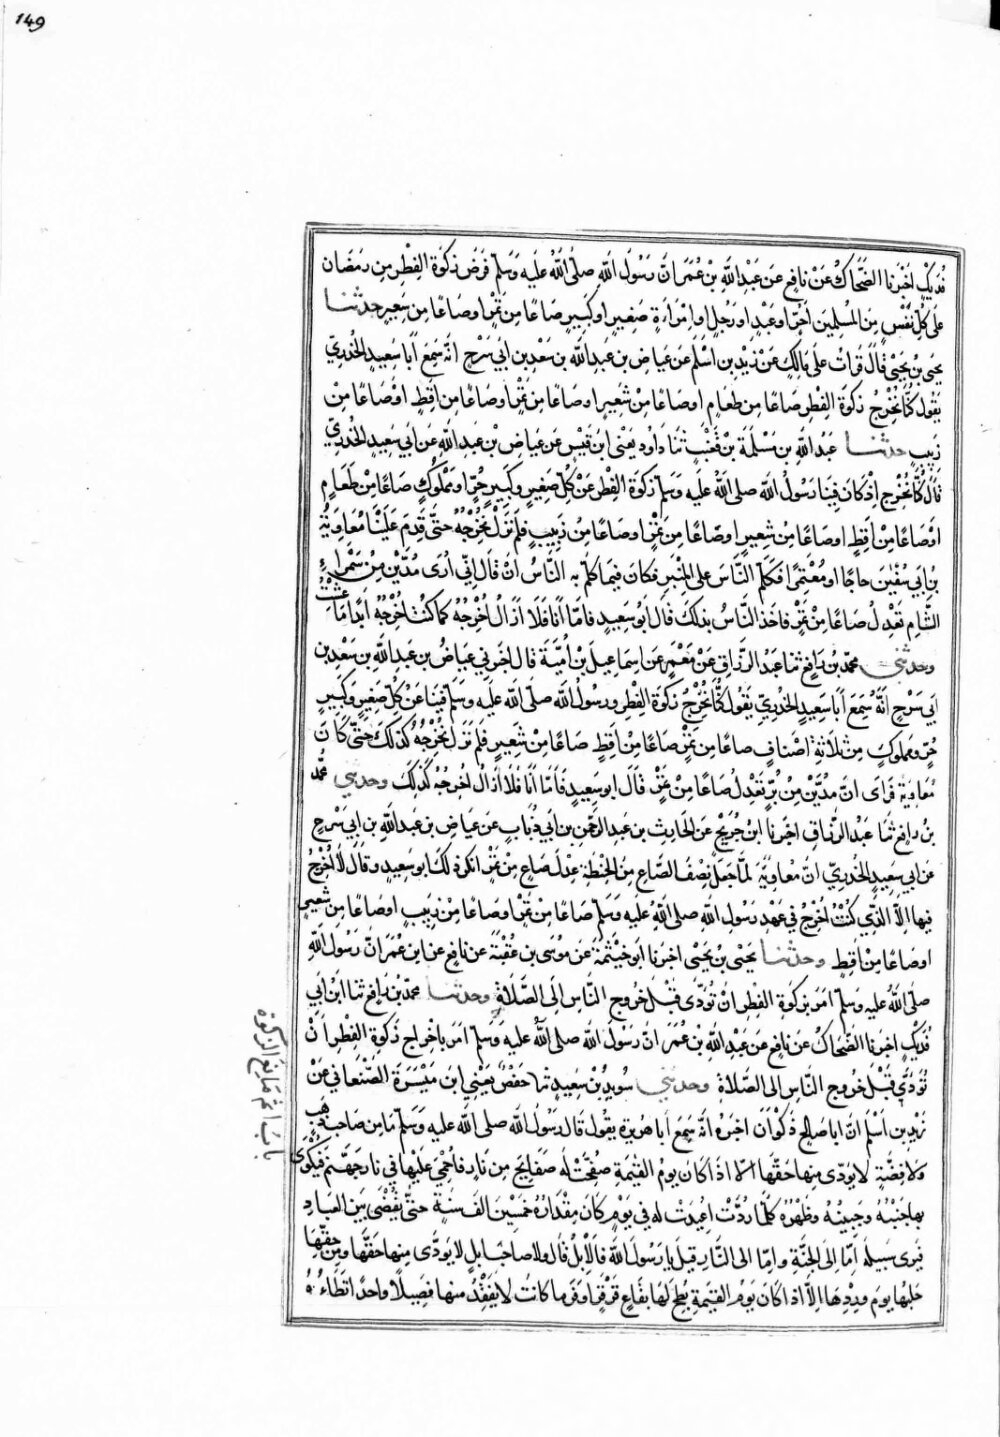 149
فُدَيْكٍ اَخْبَرَنا الضَّحَّاكُ عَنْ نافِعٍ عَن عَبْدِ اللّٰهِ بْنِ عُمَرَ انَّ رَسُولَ اللّٰهِ صلى اللّٰهُ عليه وَسَلم فَرَضَ زكوة الفِطْرِ مِن رمَضَان
على كلِّ نَفْسٍ مِنَ المُسْلِمينَ حُرٍّ اوعَبْدٍ او رَجُلٍ اوِ امْرَاَةٍ صَغِيرٍ اوكَبِيرٍ صَاعًا مِن تَمْرٍ اوصَاعًا مِن شَعِيرٍ حدثنا
يحيى بْنُ يَحْيَى قالَ قَرَاْتُ عَلَى مَالِكٍ عَنْ زَيْدِ بنِ اَسْلَمَ عَن عِيَاضِ بن عَبدِ اللّٰهِ بن سَعْدِ بن ابى سَرْحٍ انَّهُ سَمِعَ اَبَا سَعِيدٍ الخُدْرِيَّ
يَقُولُ كُنَّا نُخْرِجُ زكوةَ الفِطْرِ صَاعًا مِن طَعَامٍ اوصَاعًا مِنْ شَعِيرٍ اوصَاعًا مِنْ تَمْرٍ اوصَاعًا مِن اَقِطٍ اوْصَاعًا مِنْ
زَبِيبٍ حدثنا عَبْدُ اللّٰهِ بن مَسْلَمَةَ بْنِ قَعْنَبٍ ثنا دَاودُ يَعْنى ابنَ قَيْسٍ عَن عِيَاضِ بْنِ عَبدِ اللّٰهِ عَن اَبي سَعِيدٍ الخُدْرِيِّ
قَالَ كُنَّا نُخْرِجُ اِذْ كَانَ فِينا رَسُولُ اللّٰهِ صلى اللّٰهُ عليه وَسَلم زكوةَ الفِطْرِ عَنْ كُلِّ صَغِيرٍ وكَبِيرٍ حُرٍّ او مَمْلُوكٍ صَاعًا مِنْ طَعَامٍ
اوْصَاعًا مِنْ اَقِطٍ اوصَاعًا مِنْ شَعِيرٍ اوصَاعًا مِنْ تَمْرٍ اوصَاعًا مِنْ زَبِيبٍ فلم نَزَلْ نُخْرِجُهُ حتَّى قَدِمَ عَلَيْنَا مُعَاوِيَةُ
بنُ ابي سُفْيٰنَ حاجًا او مُعْتَمِرًا فَكَلَّمَ النَّاسَ على المِنْبَرِ فكان فيما كلم به النَّاسَ انْ قَالَ اِنِّي اُرَى مُدَّيْنِ مِنْ سَمْراءِ
الشَّامِ تَعْدِلُ صَاعًا مِنْ تَمْرٍ فاَخَذَ النَّاسُ بذلكَ قَالَ ابُو سَعِيدٍ فامَّا اَنَا فَلَا اَزَالُ اُخْرِجُهُ كما كنتُ اُخْرِجُهُ اَبَدًا مَا عِشْتُ
وحدثني محمّدُ بْنُ رَافِعٍ ثنا عَبْدُ الرَّزَاقِ عَنْ مَعْمَرٍ عَن اِسمَاعِيلَ بْنِ اُمَيَّةَ قالَ اخبرَني عِيَاضُ بن عَبدِ اللّٰهِ بن سَعْدِ بن
اَبي سَرْحٍ انَّهُ سَمِعَ اَبَا سَعِيدٍ الخُدْرِيَّ يَقُولُ كُنَّا نُخْرِجُ زكوةَ الفِطْرِ ورسُولُ اللّٰهِ صلى اللّٰه عليه وَسَلم فِينَا عَنْ كُلِّ صَغِيرٍ وكَبِيرٍ
حُرٍّ ومَملُوكٍ مِن ثلَاثةِ اَصْنافٍ صاعًا مِن تَمْرٍ صَاعًا مِنْ اَقِطٍ صَاعًا مِنْ شَعِيرٍ فلم نَزَلْ نُخْرِجُهُ كذلكَ حَتَّى كَانَ
مُعَاوِيَةُ فرَاَى انَّ مُدَّيْنِ مِنْ بُرٍّ تَعْدِلُ صَاعًا مِنْ تَمْرٍ قَالَ ابو سَعِيدٍ فَاَمَّا اَنَا فَلَا اَزالُ اُخرِجُهُ كَذلكَ وحدثني محمّد
بْنُ رافِعٍ ثنَا عَبْدُ الرزَّاقِ اخبَرنا ابنُ جُرَيْجٍ عَنِ الحَارِثِ بنِ عَبدِ الرَّحمنِ بنِ اَبي ذُبَابٍ عَن عِيَاضِ بن عَبدِ اللّٰهِ بن اَبي سَرْحٍ
عَن ابي سَعِيدٍ الخُدْرِيِّ انَّ مُعَاوِيَةَ لمّا جَعَلَ نِصْفَ الصَّاعِ مِنَ الحِنْطَةِ عِدْلَ صَاعٍ مِنْ تَمْرٍ انكَرَ ذلكَ ابو سَعِيدٍ وقَالَ لَا اُخْرِجُ
فيها اِلَّا الذِّي كُنْتُ اُخْرِجُ في عَهْدِ رَسُولِ اللّٰهِ صلى اللّٰهُ عليه وَسَلم صَاعًا مِنْ تَمْرٍ اوصَاعًا مِنْ زَبِيبٍ اوصَاعًا مِن شعير
اوصَاعًا مِنْ اَقِطٍ وحدثنا يَحْيَى بنُ يَحْيَى اخبَرنا ابُو خَيْثَمَةَ عَن مُوسَى بن عُقْبَةَ عَن نَافِعٍ عَن ابن عُمَرَ انَّ رَسُولَ اللّٰهِ
صلى اللّٰهُ عليه وَسَلم امَرَ بزكوةِ الفِطْرِ انْ تُوَدَّى قَبْلَ خُروجِ النَّاسِ اِلَى الصَّلَاةِ وحدثنا محمّد بْنُ رَافِعٍ ثنا ابن ابي
فُدَيْكٍ اخبرَنا الضَّحَاكُ عَن نافِعٍ عَن عَبْدِ اللّٰهِ بْنِ عُمَرَ انَّ رَسُولَ اللّٰهِ صلى اللّٰهُ عليه وَسَلم امَرَ باِخْراجِ زكوةِ الفِطْرِ اَنْ
تُوَدَّى قَبْلَ خُروجِ النَّاسِ الى الصَّلَاةِ وحدثني سُوَيْدُ بْنُ سَعِيدٍ ثنا حَفْصٌ يَعْنِي ابن مَيْسَرَةَ الصَّنْعَانيَّ عَنْ
زَيْدِ بن اَسْلَمَ انَّ ابا صَالِحٍ ذَكْوَانَ اخبَرَهُ انَّهُ سَمِعَ اَبا هُرَيْرَةَ يقُولُ قَالَ رَسُولُ اللّٰهِ صلى اللّٰه عليه وَسَلم مَا مِن صَاحِبِ ذَهَبٍ
وَلَا فِضَّةٍ لا يوَدّى مِنها حَقَّهَا اِلَّا اذَا كَانَ يومُ القِيٰمَةِ صُفِّحَتْ لَهُ صَفَايِحُ مِن نَارٍ فاُحْمِيَ عَلَيْها في نارِ جَهَنَّمَ فَيُكْوَى
بها جَنْبُهُ وجَبِينُهُ وظَهْرُهُ كلَّمَا رُدَّتْ اُعِيدَتْ له في يَوْمٍ كَانَ مِقْدَارُهُ خَمسِينَ اَلفَ سَنَةٍ حَتَّى يُقْضَى بَيْنَ العِبَادِ
فيرى سَبيلَهُ اِمّا اِلَى الجَنَّةِ وامَّا الى النَّارِ قيلَ يا رَسُولَ اللّٰهِ فَالْاِبِلُ قَالَ ولا صاحِبُ ابلٍ لا يوَدّى مِنها حَقَّها ومِنْ حَقِّهَا
حَلَبُها يومَ وِرْدِهَا اِلَّا اذا كانَ يَوْمُ القِيٰمَةِ بُطِحَ لَهَا بقَاعٍ قَرْقَرٍ اوفَرَ ما كانَتْ لا يَفْقِدُ منها فَصِيلًا واحدًا تطَاءُهُ
بَابُ اِثْم مَانِعِ الزكوة